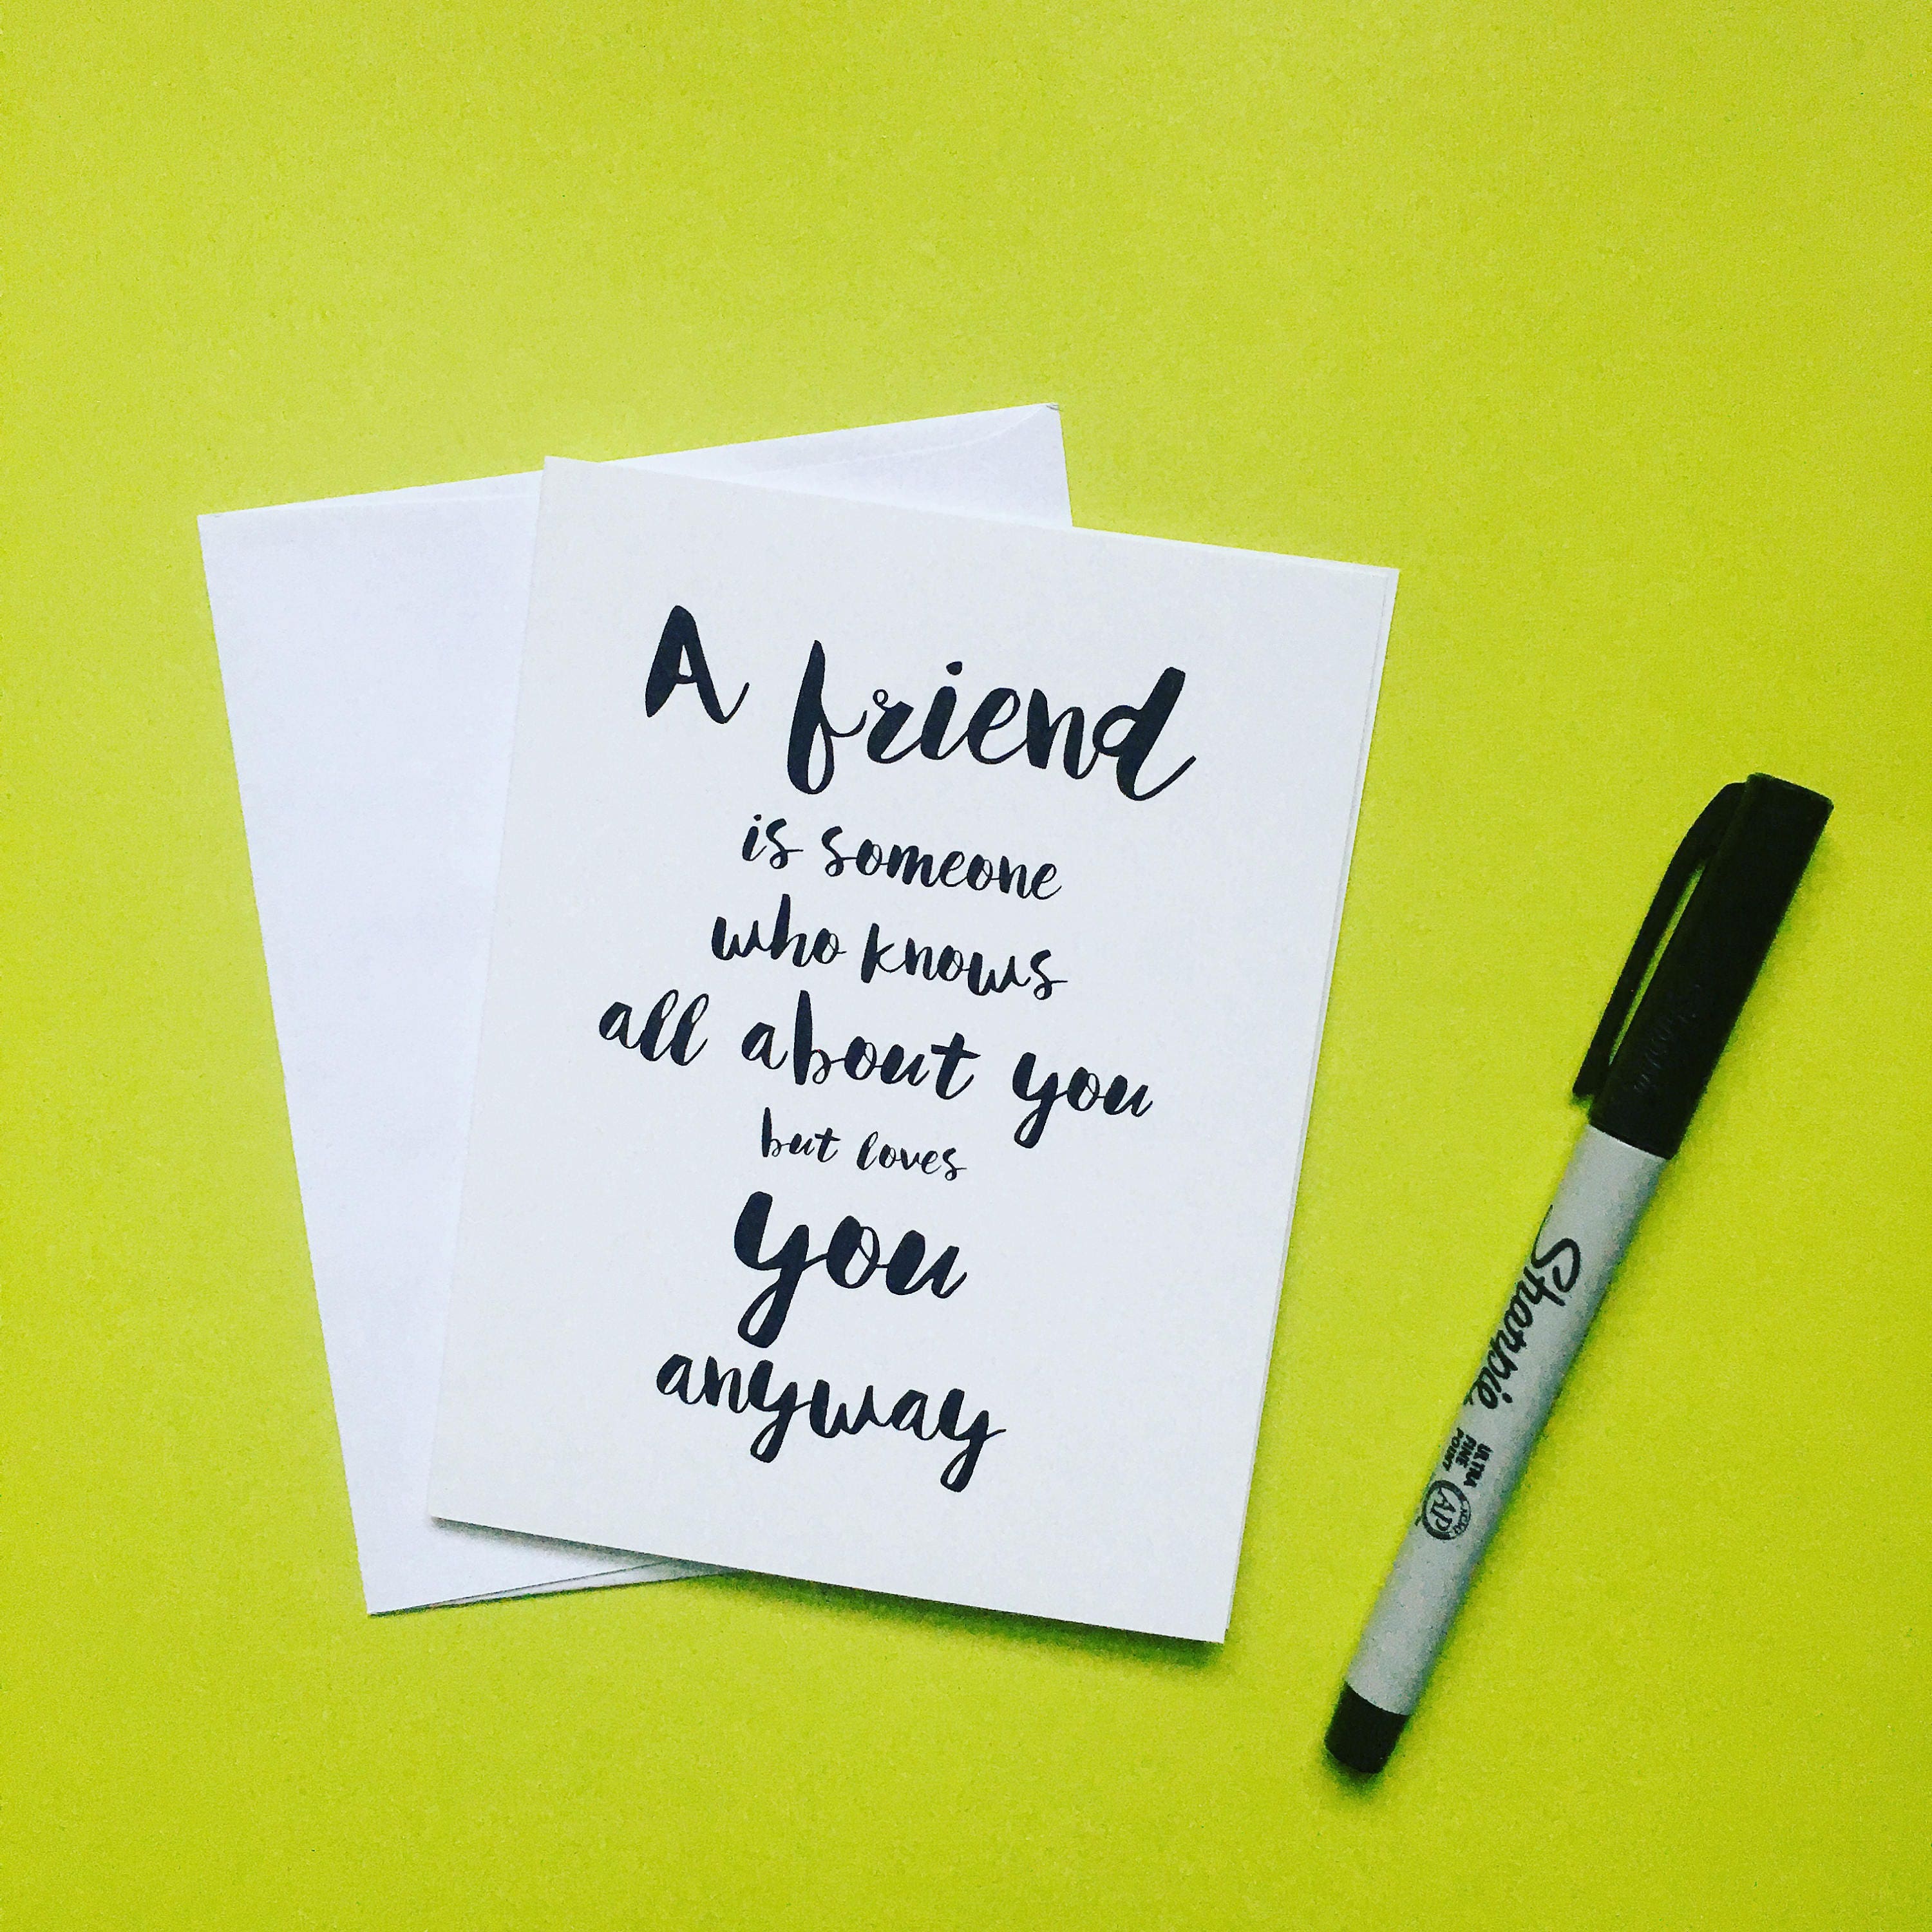 A friend
is someone
who knows
all about you
but loves
you
anyway
Sharpie
ULTRA
FINE
POINT
AP